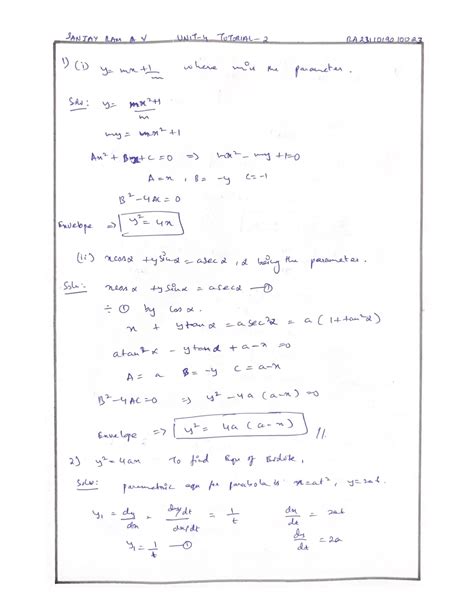 SANJAY RAM B V UNIT-4 TUTORIAL-2
1) (i) y = mx + 1/m where m is the parameter.
Soln: y = mx²+1 / m
my = mx² + 1
Am² + Bm + C = 0 ⇒ mx² - my + 1 = 0
A = x, B = -y C = -1
B² - 4AC = 0
Envelope ⇒ y² = 4x
(ii) x cos α + y sin α = a sec α, α being the parameter.
Soln: x cos α + y sin α = a sec α —①
÷ ① by cos α.
x + y tan α = a sec² α = a (1 + tan² α)
a tan² α - y tan α + a - x = 0
A = a B = -y C = a-x
B² - 4AC = 0 ⇒ y² - 4a (a-x) = 0
Envelope ⇒ y² = 4a (a-x) //
2) y² = 4ax To find Eqn of Evolute.
Soln: parametric eqn for parabola is x = at², y = 2at.
y₁ = dy/dx = dy/dt / dx/dt = 1/t dx/dt = 2at
y₁ = 1/t —① dy/dt = 2a